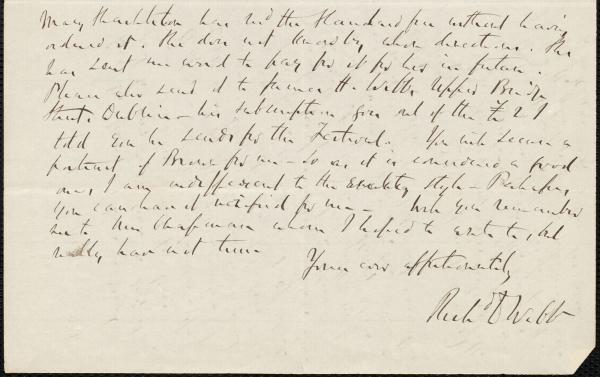 Mary Thackleton has rec'd the Standard free without having
ordered it. She does not know by whose directions. She
has sent me word to pay for it for her in future.
Please also send it to James H. Webb, Upper Bridge
Street, Dublin – his subscription goes out of the £ 21
told you he sends for the Festival. You will secure a
portrait of Brown for me – so as it is considered a good
one, I am indifferent to the style – Perhaps
you can have it for me – Will you remember
me to Mrs Chapman whom I hoped to write to, but
really have not time
Yours ever affectionately
Rich'd D Webb